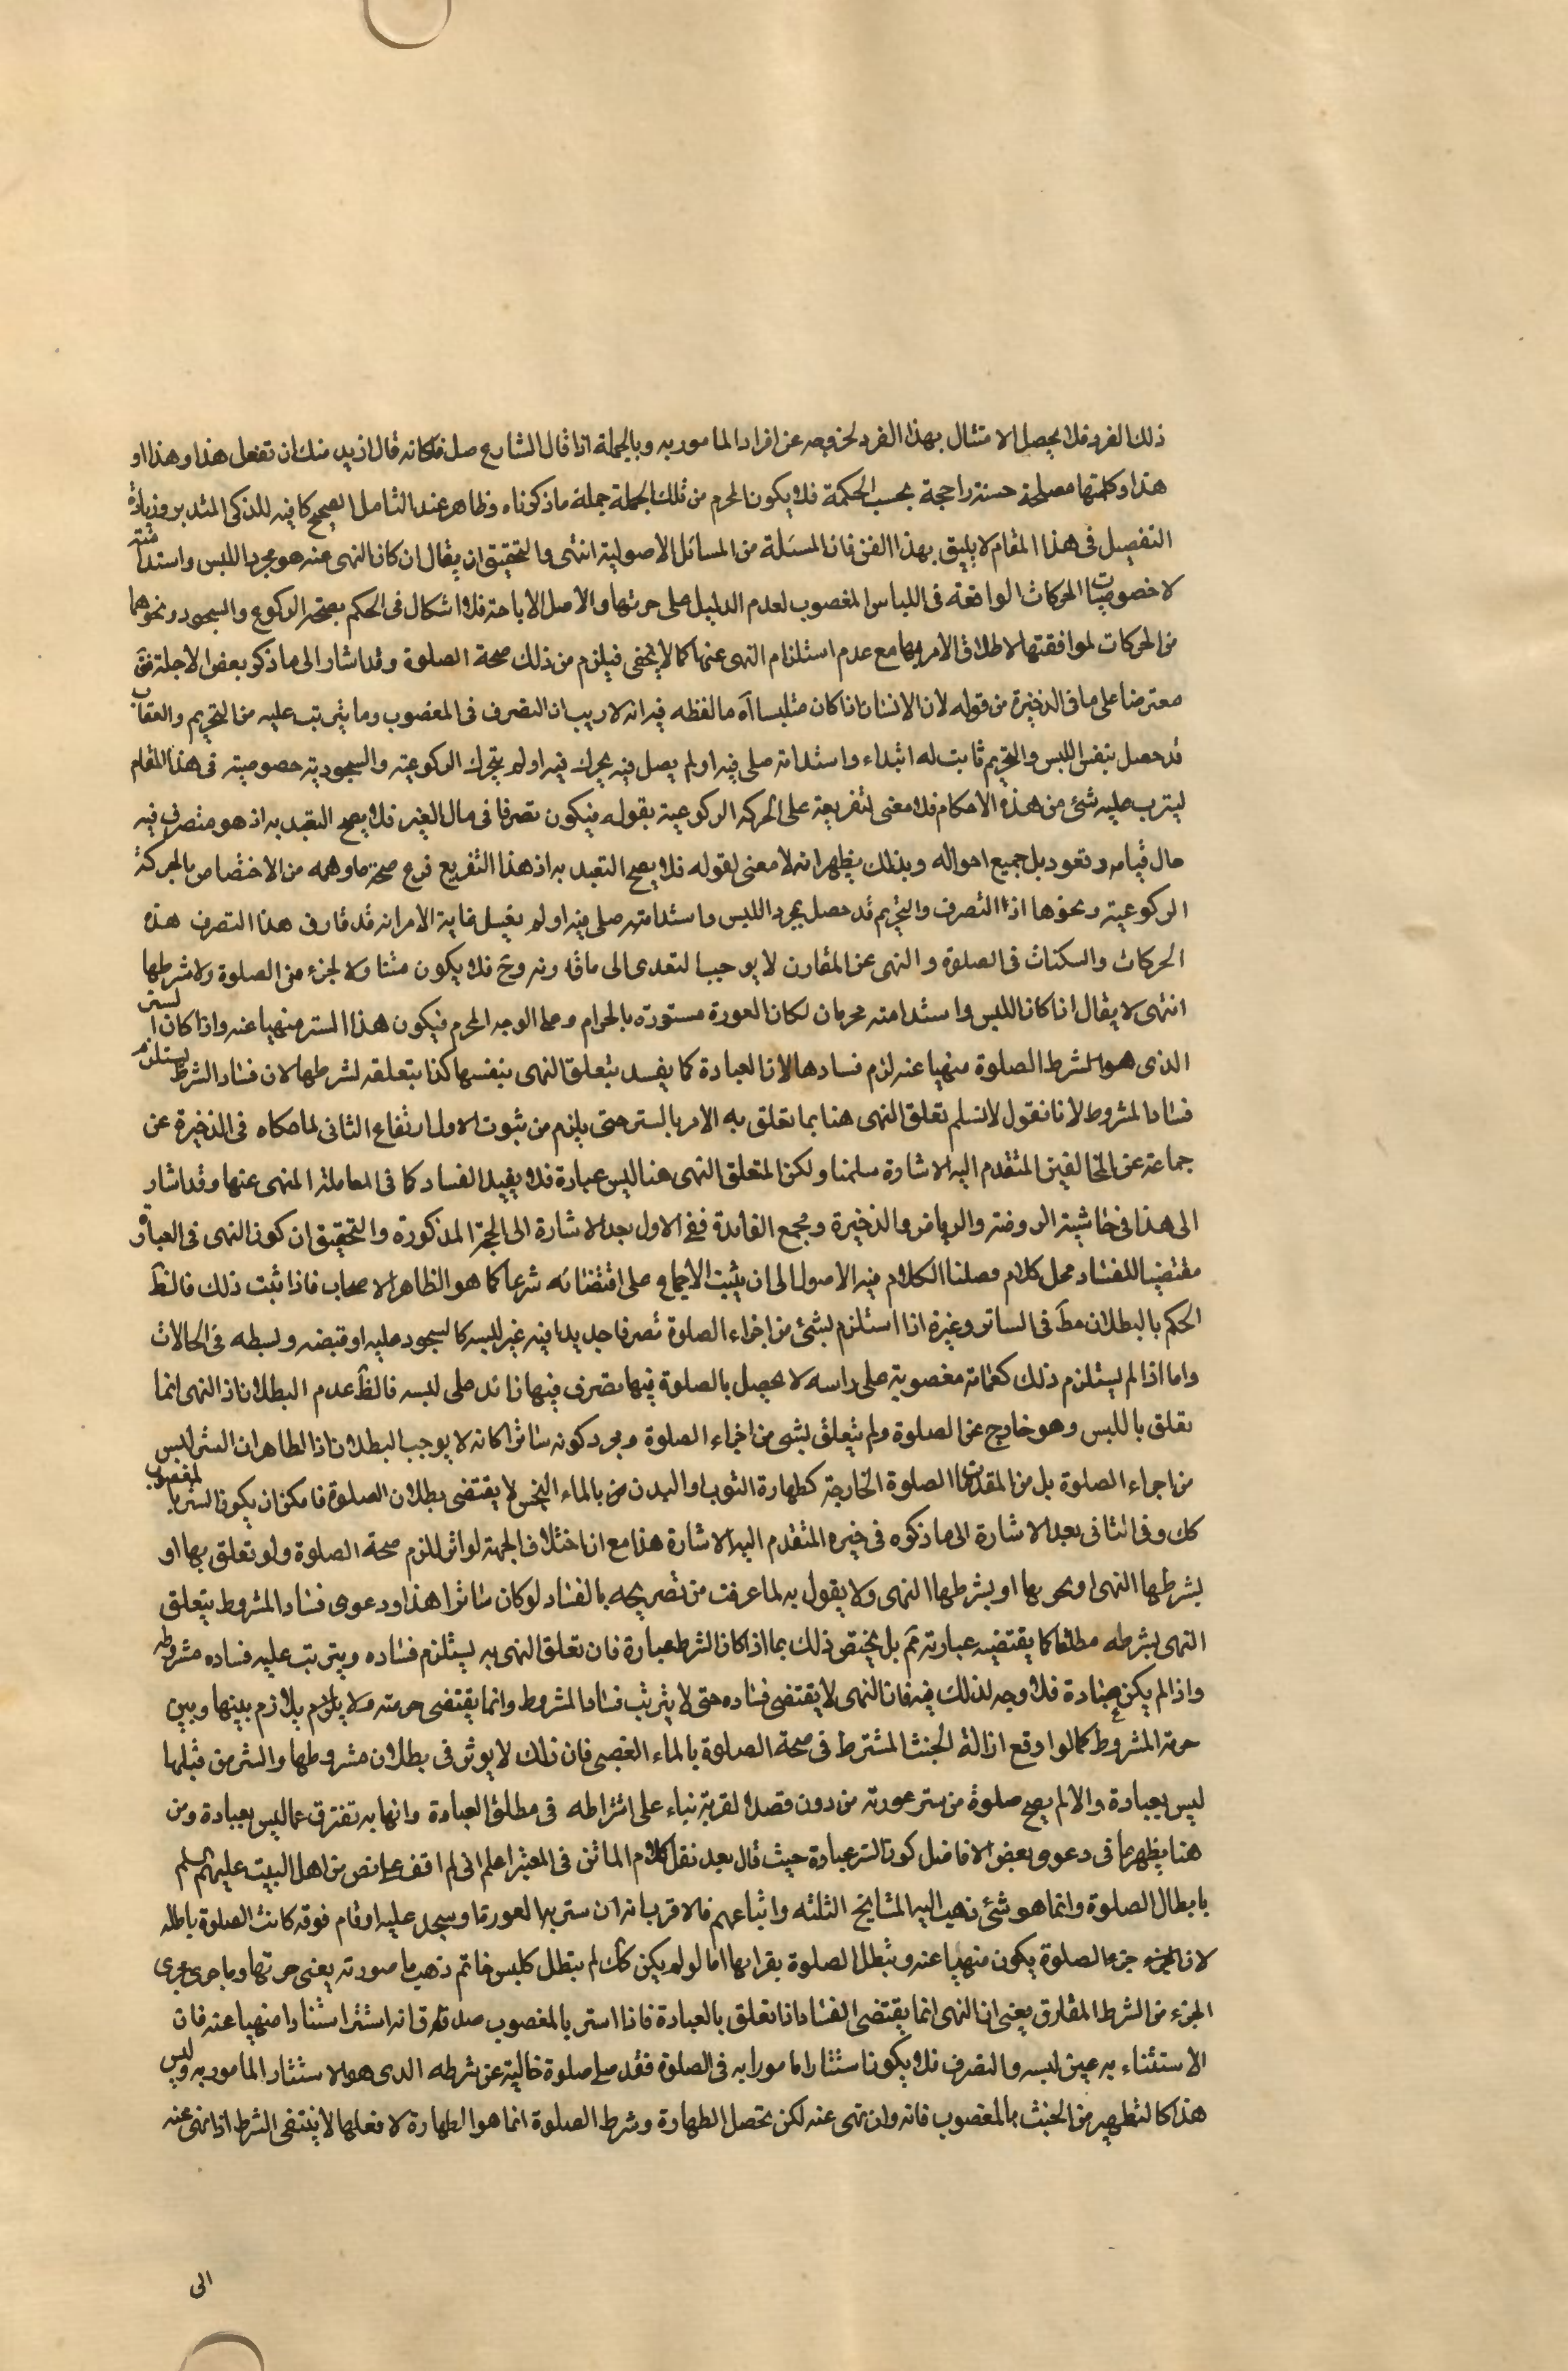 ذلك الفرد فلا يحصل الامتثال بهذا الفرد لخروجه عن افراد المامور به وبالجملة اذا قال الشارع صل فكانه قال اريد منك ان تفعل هذا وهذا او
هذا وكلها مصلحة حسنة راجحة بحسب الحكمة فلا يكون المحرم من تلك الجملة جملة ما ذكرناه وظاهر عند التامل الصحيح كافيه للذكى المتدبر وزيادة
التفصيل فى هذا المقام لا يليق بهذا الفن فان المسئلة من المسائل الاصولية انتهى والتحقيق ان يقال ان كان النهى عنه هو مجرد اللبس واستدامته
لا خصوصيات الحركات الواقعة فى اللباس المغصوب لعدم الدليل على حرمتها والاصل الاباحة فلا اشكال فى الحكم بصحة الركوع والسجود ونحوهما
من الحركات لموافقتها لاطلاق الامر بها مع عدم استلزام النهى عنها كما لا يخفى فيلزم من ذلك صحة الصلوة وقد اشار الى ما ذكر بعض الاجلة فق
معترضا على ما فى الذخيرة من قوله لان الانسان اذا كان متلبسا آه ما لفظه فيه انه لا ريب ان التصرف فى المغصوب وما يترتب عليه من التحريم والعقاب
قد حصل بنفس اللبس والتحريم ثابت له ابتداء واستدامة صلى فيه او لم يصل فيه تحرك فيه او لم يتحرك الركوعية والسجودية خصوصية فى هذا المقام
ليترتب عليه شئ من هذه الاحكام فلا معنى لتفريعه على الحركة الركوعية بقوله فيكون تصرفا فى مال الغير فلا يصح التعبد به اذ هو متصرف فيه
حال قيامه وقعوده بل جميع احواله وبذلك يظهر انه لا معنى لقوله فلا يصح التعبد به اذ هذا التفريع فرع صحة ما وهمه من الاختصاص بالحركة
الركوعية ونحوها اذ التصرف والتحريم قد حصل بمجرد اللبس واستدامته صلى فيه او لم يفعل غاية الامر انه قد قارف هذا التصرف هذه
الحركات والسكنات فى الصلوة والنهى عن المقارن لا يوجب التعدى الى ما قارنه وح فلا يكون متناولا لجزء من الصلوة ولا شرطها
انتهى لا يقال اذا كان اللبس واستدامته محرمان لكان العورة مستورة بالحرام وعلى الوجه المحرم فيكون هذا الستر منهيا عنه واذا كان الستر
الذى هو الشرط الصلوة منهيا عنه لزم فسادها لان العبادة كما يفسد بتعلق النهى بنفسها كذا بتعلقه لشرطها لان فساد الشرط يستلزم
فساد المشروط لانا نقول لا نسلم تعلق النهى هنا بما تعلق به الامر بالستر حتى يلزم من ثبوت الاول ارتفاع الثانى لما حكاه فى الذخيرة عن
جماعة عن المخالفين المتقدم اليه الاشارة سلمنا ولكن المتعلق النهى هنا ليس عبادة فلا يفيد الفساد كما فى المعاملة المنهى عنها وقد اشار
الى هذا فى حاشية الروضة والرياض والذخيرة ومجمع الفائدة ففى الاول بعد الاشارة الى الحجة المذكورة والتحقيق ان كون النهى فى العبادة
مقتضيا للفساد محل كلام فصلنا الكلام فيه الاصول الى ان يثبت الاجماع على اقتضائه شرعا كما هو الظاهر الاصحاب فاذا ثبت ذلك فالظ
الحكم بالبطلان مط فى الساتر وغيره اذا استلزم لشئ من اجزاء الصلوة تصرفا جديدا فيه غير لبسه كالسجود عليه او قبضه وبسطه فى الحالات
واما اذا لم يستلزم ذلك كعمامة مغصوبة على راسه لا يحصل بالصلوة فيها تصرف فيها زائد على لبسه فالظ عدم البطلان اذ النهى انما
تعلق باللبس وهو خارج عن الصلوة ولم يتعلق بشئ من اجزاء الصلوة ومجرد كونه ساترا كانه لا يوجب البطلان اذ الظاهر ان الستر ليس
من اجزاء الصلوة بل من المقدمات الصلوة الخارجة كطهارة الثوب او البدن من بالماء النجس لا يقتضى بطلان الصلوة فامكن ان يكون الستر بالمغصوب
كك وفى الثانى بعد الاشارة الى ما ذكره فى خيره المتقدم اليه الاشارة هذا مع ان اختلاف الجهة لو اثر للزم صحة الصلوة ولو تعلق بها او
بشرطها النهى او نحو بها او بشرطها النهى ولا يقول به لما عرفت من تصريحه بالفساد لو كان ساترا هذا ودعوى فساد المشروط بتعلق
النهى بشرطه مطلقا كما يقتضيه عبارته مم بل يختص ذلك بما اذا كان الشرط عبارة فان تعلق النهى به يستلزم فساده ويترتب عليه فساده مشروطه
واذا لم يكن عبادة فلا وجه لذلك فيه فان النهى لا يقتضى فساده حتى لا يترتب فساد المشروط وانما يقتضى حرمته ولا يلازم بينها وبين
حرمة المشروط كما لو اوقع ازالة الخبث المشترط فى صحة الصلوة بالماء الغصبى فان ذلك لا يوثر فى بطلان مشروطها والستر من قبلها
ليس بعبادة والا لم يصح صلوة من ستر عورته من دون قصد القربة بناء على اشتراطه فى مطلق العبادة وانها به تفترق عما ليس بعبادة ومن
هنا يظهر ما فى دعوى بعض الافاضل كون الستر عبادة حيث قال بعد نقل كلام الماتن فى المعتبر اعلم انى لم اقف على نص من اهل البيت عليهم السلم
بابطال الصلوة وانما هو شئ ذهب اليه المشايخ الثلثه واتباعهم فالاقرب انه ان ستر به العورة او سجد عليه او قام فوقه كانت الصلوة باطلة
لان الجزء جزء الصلوة يكون منهيا عنه وتبطل الصلوة بفواتها اما لو لم يكن كك لم تبطل كلبس خاتم ذهب ما صورته يعنى حرمتها وما جرى مجرى
الجزء من الشرط المقارن يعنى ان النهى انما يقتضى الفساد اذا تعلق بالعبادة فاذا استر بالمغصوب صدق انه استتر استتارا منهيا عنه فان
الاستتار به عين لبسه والتصرف فلا يكون استتارا مامورا به فى الصلوة فقد صلى صلوة خالية عن شرطه الذى هو الاستتار المامور به وليس
هذا كالتطهير من الخبث بالمغصوب فانه وان نهى عنه لكن تحصل الطهارة وشرط الصلوة انما هو الطهارة لا فعلها لا ينتفى الشرط اذا نهى عنه
الى